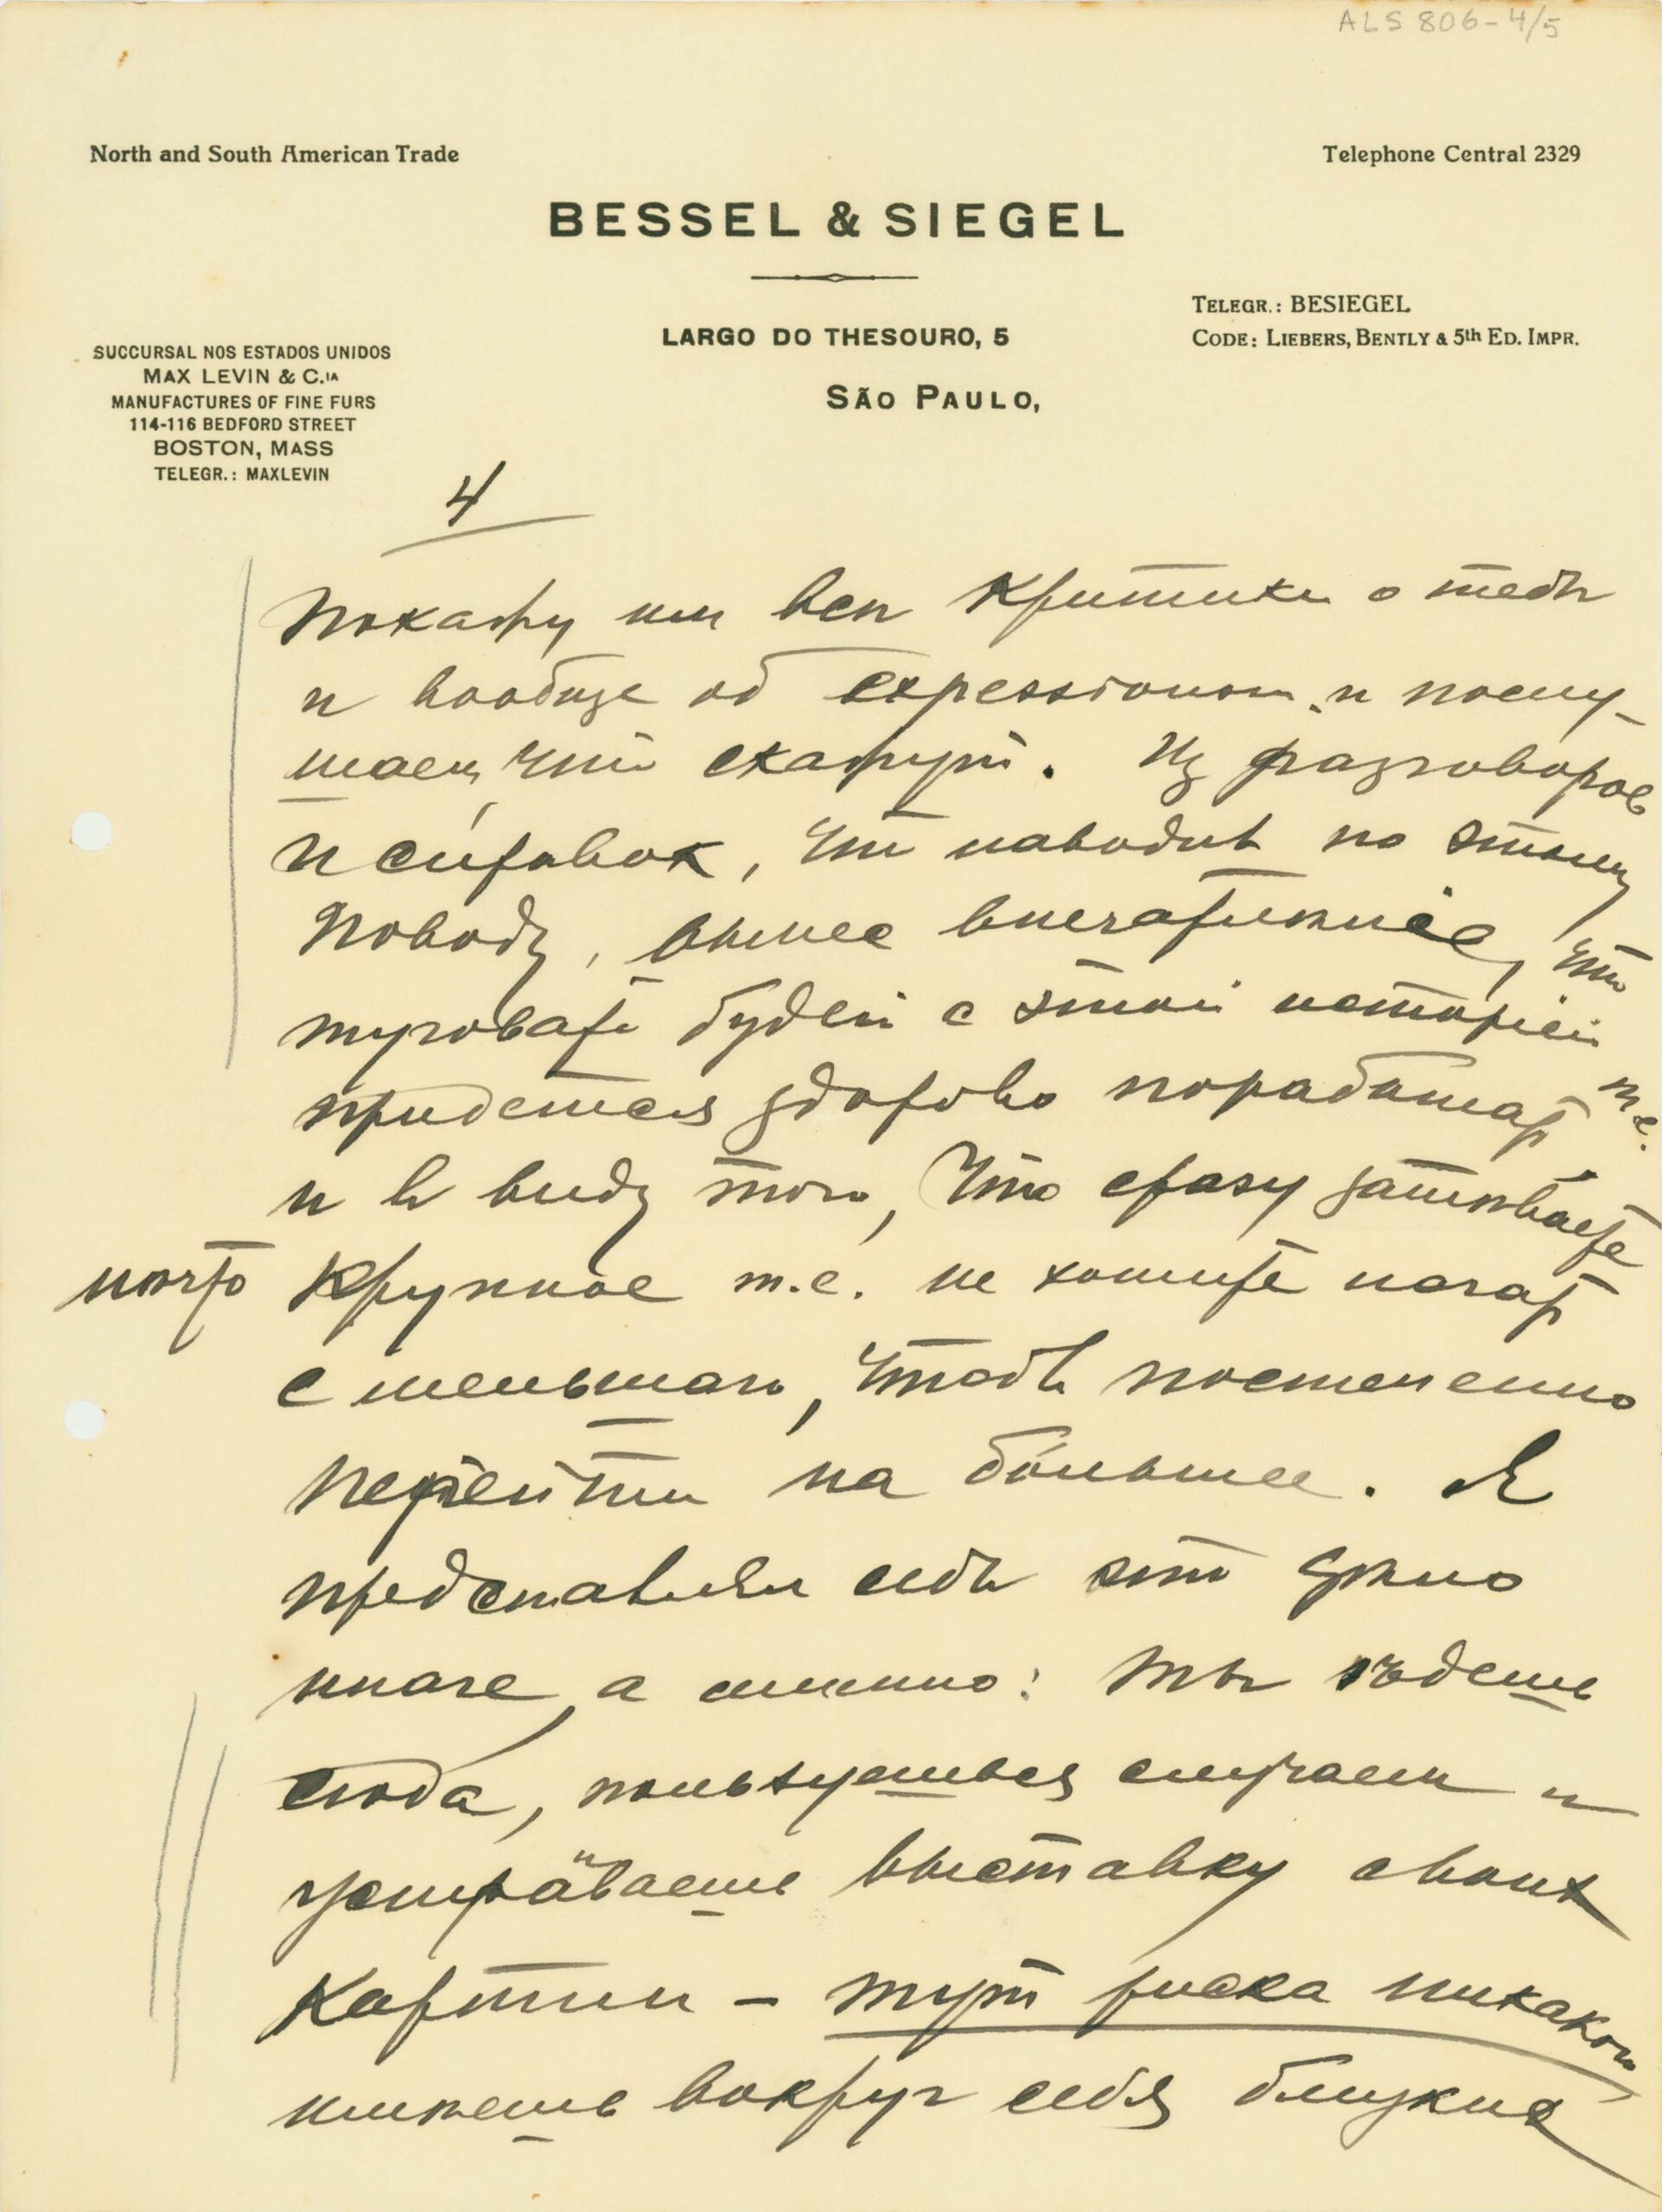 ALS 806-4/5
North and South American Trade
Telephone Central 2329
BESSEL & SIEGEL
TELEGR.: BESIEGEL
LARGO DO THESOURO, 5
CODE: LIEBERS, BENTLY & 5th ED. IMPR.
SUCCURSAL NOS ESTADOS UNIDOS
MAX LEVIN & C.IA
SÃO PAULO,
MANUFACTURES OF FINE FURS
114-116 BEDFORD STREET
BOSTON, MASS
TELEGR.: MAXLEVIN
4
Покажу им все критики о тебѣ
и вообще об expressionism. и послу-
шаем что скажут. Из разговоров
и справок, что наводил по этому
поводу, вынес впечатлѣние, что
будет с этой исторіей
придется здорово поработать т.е.
и в виду того, что сразу затѣваете
нѣчто крупное т.е. не хотите начать
с меньшаго, чтобы постепенно
перейти на большее. Я
представлял себѣ это дѣло
иначе, а именно: ты ѣдешь
сюда, пользуешься случаем и
устраиваешь выставку своих
картин – тут риска никакого
имѣешь вокруг себя близких